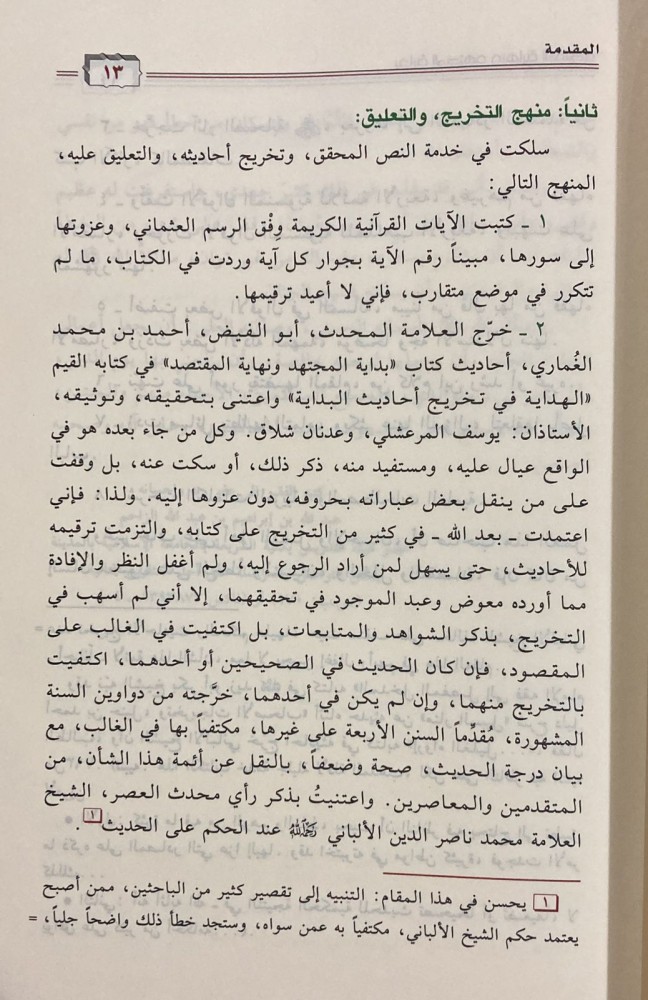 المقدمة
١٣
ثانياً: منهج التخريج، والتعليق:
سلكت في خدمة النص المحقق، وتخريج أحاديثه، والتعليق عليه،
المنهج التالي:
١ ـ كتبت الآيات القرآنية الكريمة وِفْق الرسم العثماني، وعزوتها
إلى سورها، مبيناً رقم الآية بجوار كل آية وردت في الكتاب، ما لم
تتكرر في موضع متقارب، فإني لا أعيد ترقيمها.
٢ ـ خرّج العلامة المحدث، أبو الفيض، أحمد بن محمد
الغُماري، أحاديث كتاب «بداية المجتهد ونهاية المقتصد» في كتابه القيم
«الهداية في تخريج أحاديث البداية» واعتنى بتحقيقه، وتوثيقه،
الأستاذان: يوسف المرعشلي، وعدنان شلاق. وكل من جاء بعده هو في
الواقع عيال عليه، ومستفيد منه، ذكر ذلك، أو سكت عنه، بل وقفت
على من ينقل بعض عباراته بحروفه، دون عزوها إليه. ولذا: فإني
اعتمدت ـ بعد الله ـ في كثير من التخريج على كتابه، والتزمت ترقيمه
للأحاديث، حتى يسهل لمن أراد الرجوع إليه، ولم أغفل النظر والإفادة
مما أورده معوض وعبد الموجود في تحقيقهما، إلا أني لم أسهب في
التخريج، بذكر الشواهد والمتابعات، بل اكتفيت في الغالب على
المقصود، فإن كان الحديث في الصحيحين أو أحدهما، اكتفيت
بالتخريج منهما، وإن لم يكن في أحدهما، خرَّجته من دواوين السنة
المشهورة، مُقدِّماً السنن الأربعة على غيرها، مكتفياً بها في الغالب، مع
بيان درجة الحديث، صحة وضعفاً، بالنقل عن أئمة هذا الشأن، من
المتقدمين والمعاصرين. واعتنيتُ بذكر رأي محدث العصر، الشيخ
العلامة محمد ناصر الدين الألباني رحمه الله عند الحكم على الحديث١.
١ يحسن في هذا المقام: التنبيه إلى تقصير كثير من الباحثين، ممن أصبح
يعتمد حكم الشيخ الألباني، مكتفياً به عمن سواه، وستجد خطأ ذلك واضحاً جلياً، =